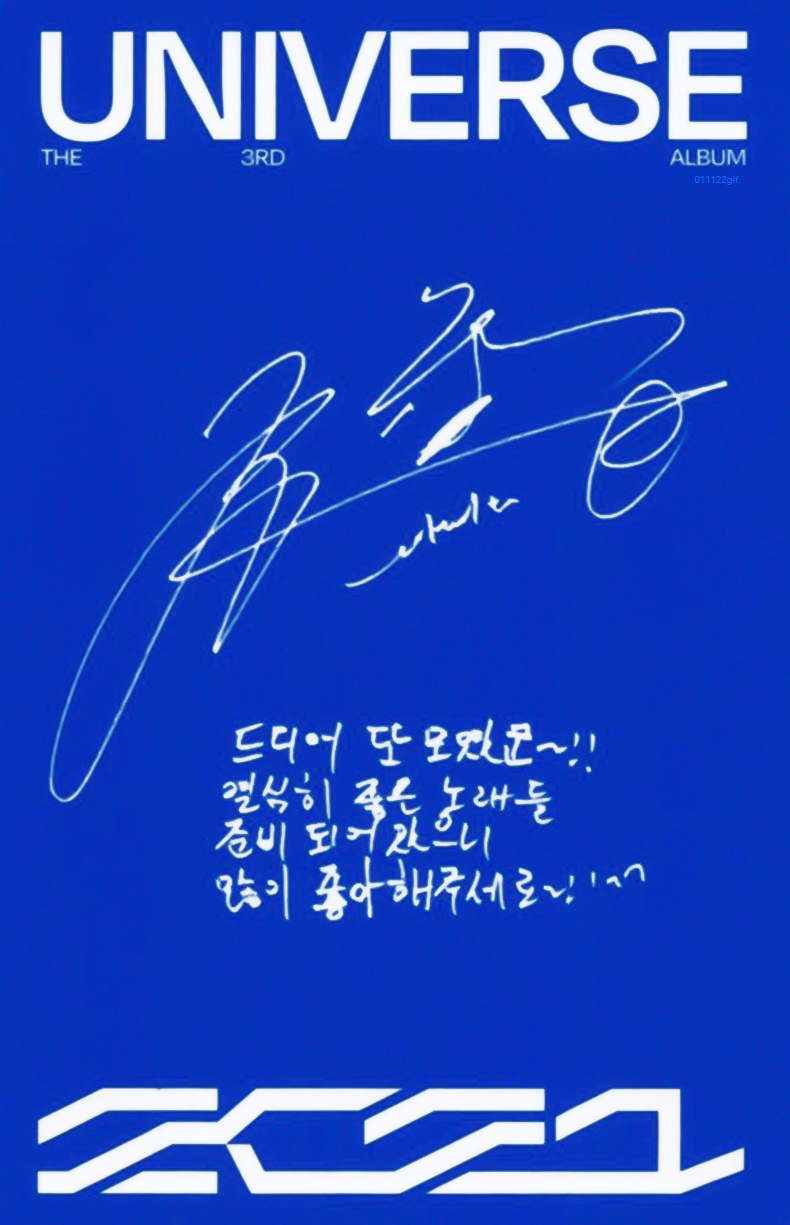 UNIVERSE
THE 3RD ALBUM
011122gif
드디어 또 모였군~!!
열심히 좋은 노래들
준비 되어 있으니
많이 좋아해주세요~!
2021